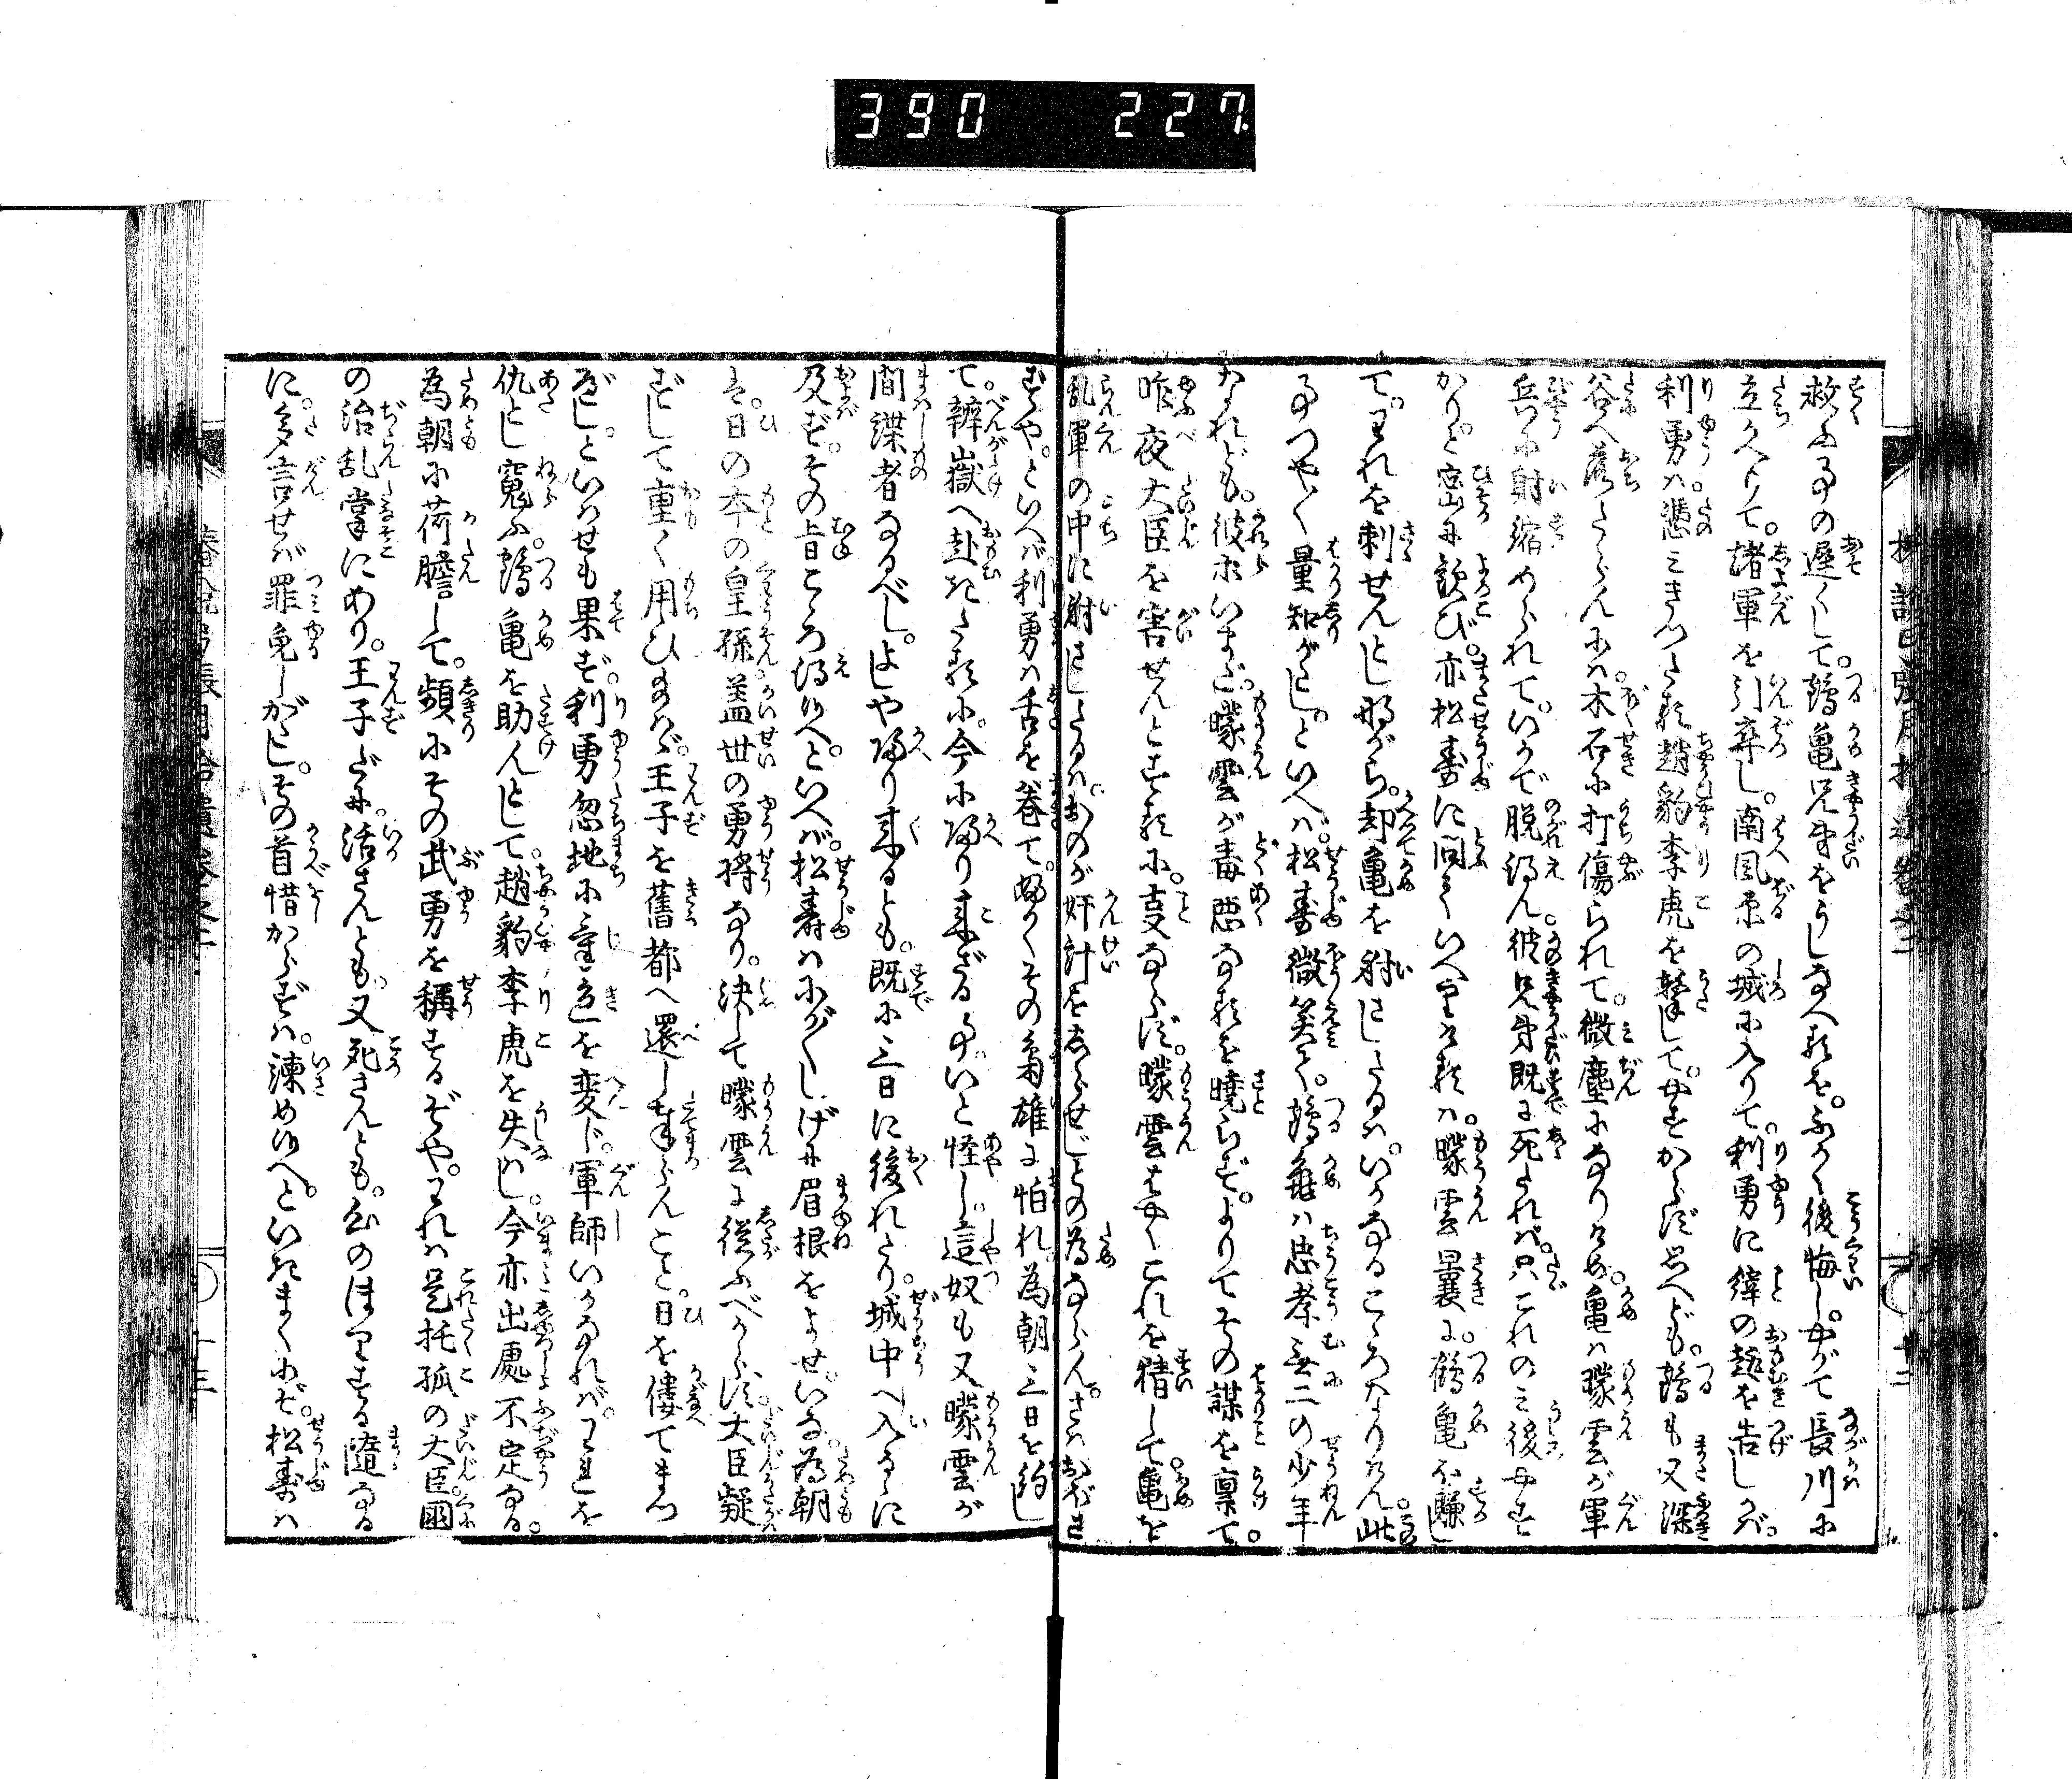 390 227
救ふ事の遅くして。鶴亀兄弟をうしなへるを。ふかく後悔し。やがて長川に
立かへりて。諸軍を引率し。南風原の城に入りて。利勇に縡の趣を告しかば。
利勇は憑みきつたる趙豹李虎を撃して。やすからず思へども。鶴も又深
谷へ落たらんには。木石に打傷られて。微塵になりけめ。亀は曚雲が軍
兵に射縮められて。いかで脱得ん。彼兄弟既に死たれば。只これのみ後やす
かりと。密に歓び。亦松寿に問ていへりけるは。曚雲曩に。鶴亀を賺し
て。われを刺せんとし那がら。却亀を射さしたるは。いかなるこゝろなりけん。此
事つや〳〵量知がたし。といへば。松寿微笑て。鶴亀は忠孝無二の少年
なれども。彼等いまだ。曚雲が毒悪なるを暁らず。よりてその謀を稟て。
昨夜大臣を害せんとするに。事ならず。曚雲はやくこれを猜して。亀を
乱軍の中に射さしたるは。おのが奸計をしらせじとの為ならん。さはおぼさ
ずや。といへば利勇は舌を巻て。ふかくその奸雄に怕れ。為朝三日を約し
て。辨嶽へ赴きたるに。今に帰り来ざる事。いと怪し。這奴も又曚雲が
間諜者なるべし。よしや帰り来るとも。既に三日に後れたり。城中へ入るゝに
及ばず。その旨こゝろ得給へ。といへば。松寿はにが〳〵しげに眉根をよせ。いな。為朝
は。日の本の皇孫。蓋世の勇将なり。決して曚雲に従ふべからず。大臣疑
ずして重く用ひ給はゞ。王子を舊都へ還し奉らんこと。日を僂てまつ
べし。といはせも果ず。利勇忽地に気色を変じ。軍師いかなれば。われを
仇とし寃ふ。鶴亀を助んとして。趙豹李虎を失ひし。今亦出處不定なる。
為朝に荷膽して。頻にその武勇を稱するぞや。われは是托孤の大臣。國
の治乱掌にあり。王子だに。活さんとも。又死さんとも。心のほりする隨なる
に。多言せば罪免しがたし。その首惜からずは。諫め給へ。といきまくにぞ。松寿は